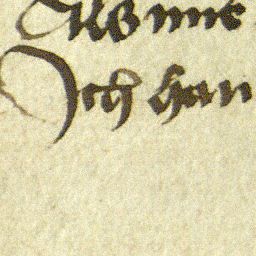 Als mir
Ich han